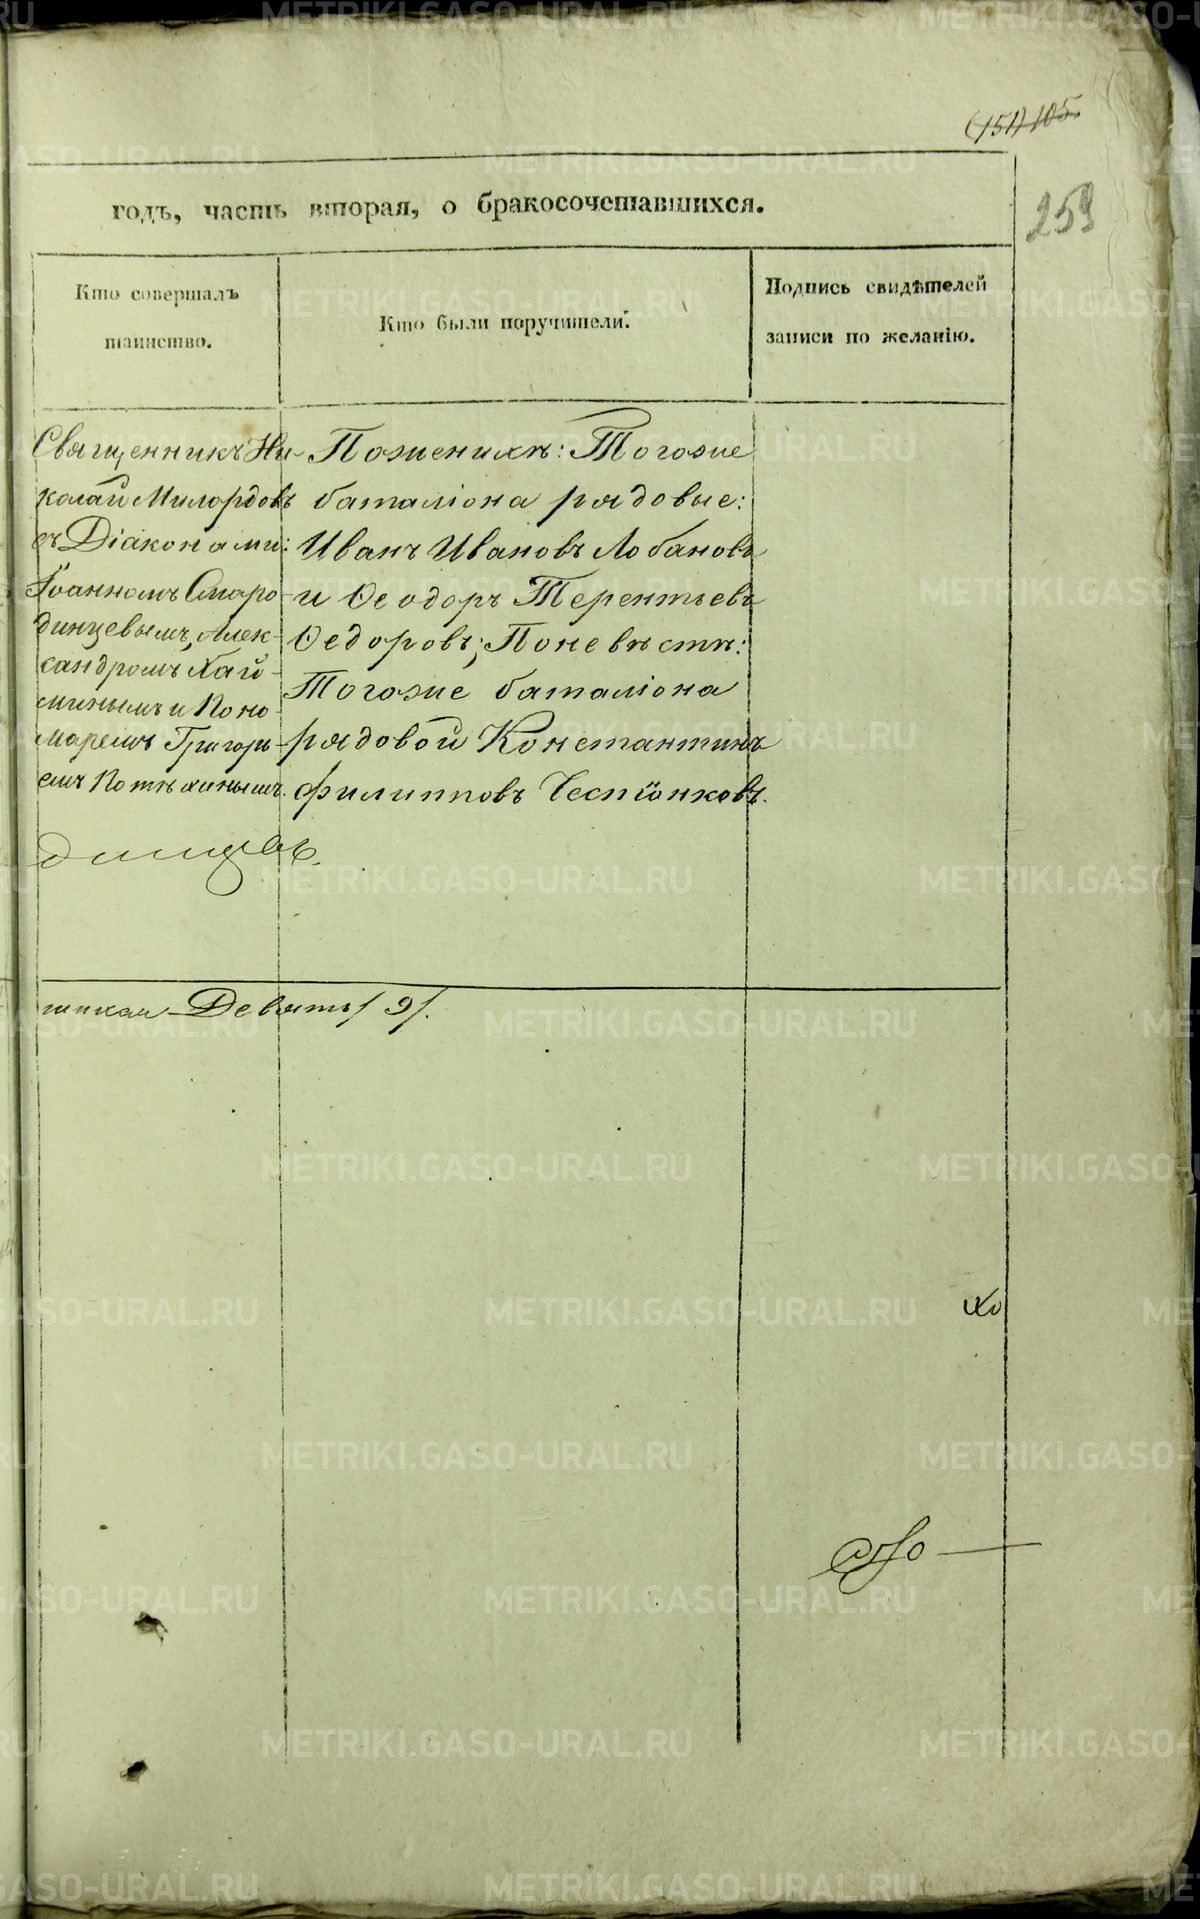 (151) 105.
259
годъ, часть вторая, о бракосочетавшихся.
Кто совершалъ
таинство.
Кто были поручители.
Подпись свидѣтелей
записи по желанію.
Священникъ Ни-
колай Милордовъ
съ Діаконами:
Іоанномъ Смаро-
динцевымъ, Алек-
сандромъ Хай-
минымъ и Поно-
маремъ Григорі-
емъ Потѣхинымъ.
По женихѣ: Тогоже
баталіона рядовые:
Иванъ Ивановъ Лобановъ
и Ѳеодоръ Терентьевъ
Ѳедоровъ; По невѣстѣ:
Тогоже баталіона
рядовой Константинъ
Филипповъ Чеспіонковъ.
динцевъ.
Девять / 9 /.
METRIKI.GASO-URAL.RU